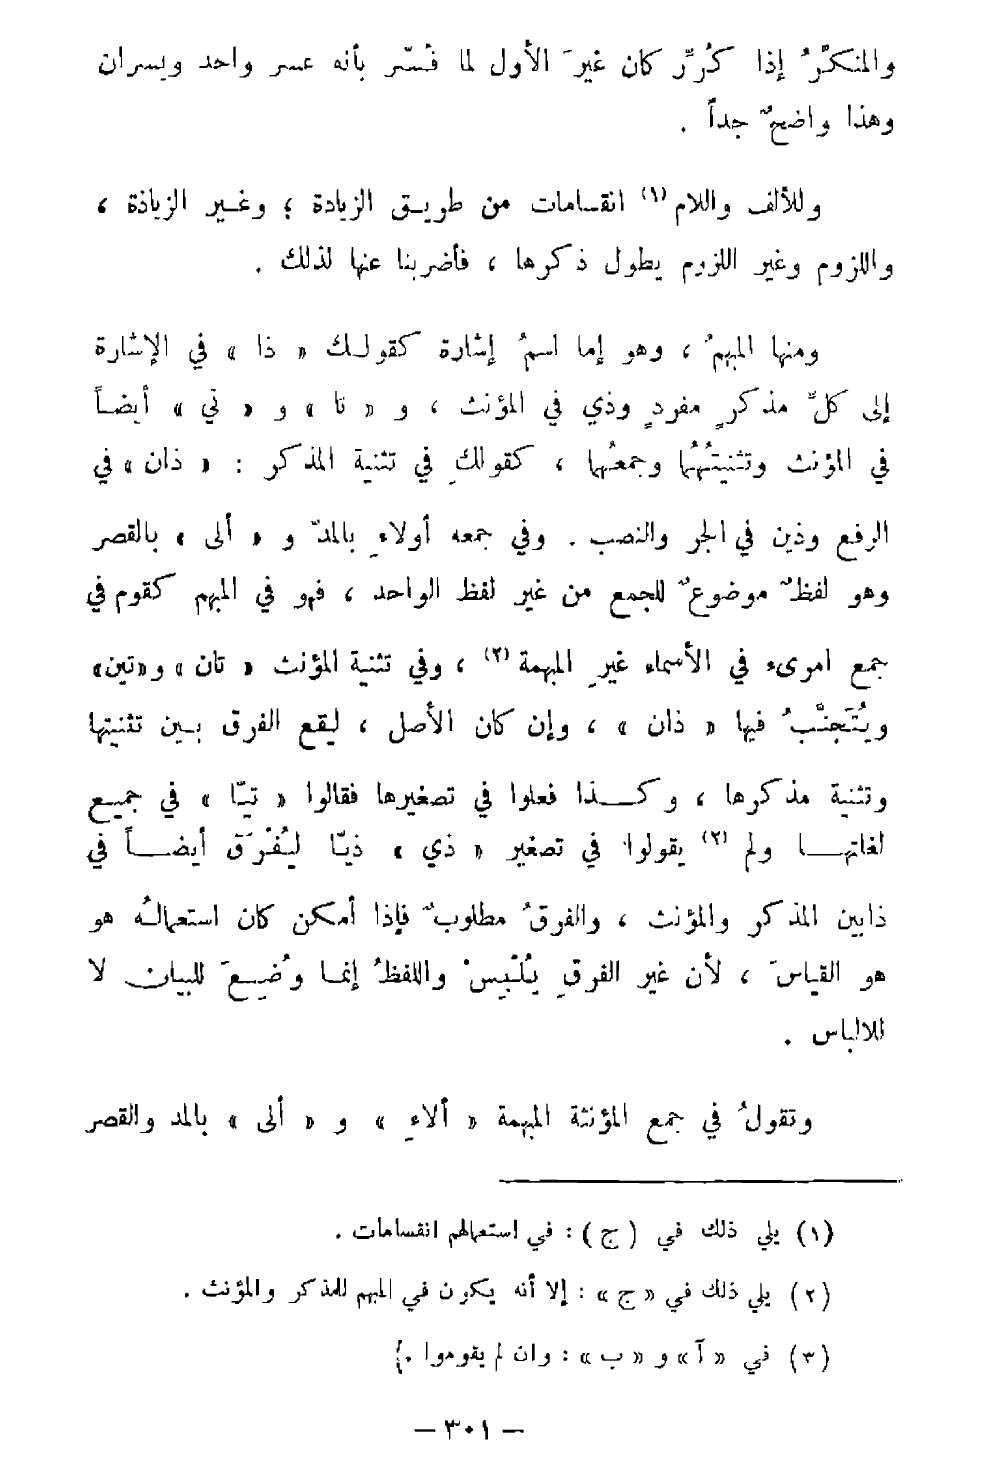 والمنكَّرُ إذا كُرِّر كان غيرَ الأول لما فُسّر بأنه عسر واحد ويسران
وهذا واضحٌ جداً .
وللألف واللام (١) انقسامات من طريق الزيادة ؛ وغير الزيادة ،
واللزوم وغير اللزوم يطول ذكرها ، فأضربنا عنها لذلك .
ومنها المبهمُ ، وهو إما اسمُ إشارة كقولك « ذا » في الإشارة
إلى كلِّ مذكرٍ مفردٍ وذي في المؤنث ، و « تا » و « تي » أيضاً
في المؤنث وتثنيتُهُما وجمعُهما ، كقولكِ في تثنية المذكر : « ذان » في
الرفع وذين في الجر والنصب . وفي جمعه أولاءِ بالمدّ و « ألى » بالقصر
وهو لفظٌ موضوعٌ للجمع من غير لفظ الواحد ، فهو في المبهم كقوم في
جمع امرىء في الأسماء غيرِ المبهمة (٢) ، وفي تثنية المؤنث « تان » و«تين»
ويُتَجنَّبُ فيها « ذان » ، وإن كان الأصل ، ليقع الفرق بين تثنيتها
وتثنية مذكرها ، وكذا فعلوا في تصغيرها فقالوا « تيّا » في جميع
لغاتها ولم (٢) يقولوا في تصغير « ذي » ذيّا ليُفْرَق أيضاً في
ذابين المذكر والمؤنث ، والفرقُ مطلوبٌ فإذا أمكن كان استعمالُه هو
هو القياسَ ، لأن غير الفرقِ يُلْبِسْ واللفظُ إنما وُضِعَ للبيان لا
للالباس .
وتقولُ في جمع المؤنثة المبهمة « ألاءِ » و « ألى » بالمد والقصر
(١) يلي ذلك في ( ج ) : في استعمالهم انقسامات .
(٢) يلي ذلك في « ج » : إلا أنه يكون في المبهم للمذكر والمؤنث .
(٣) في « آ » و « ب » : وان لم يقوموا .
– ٣٠١ –